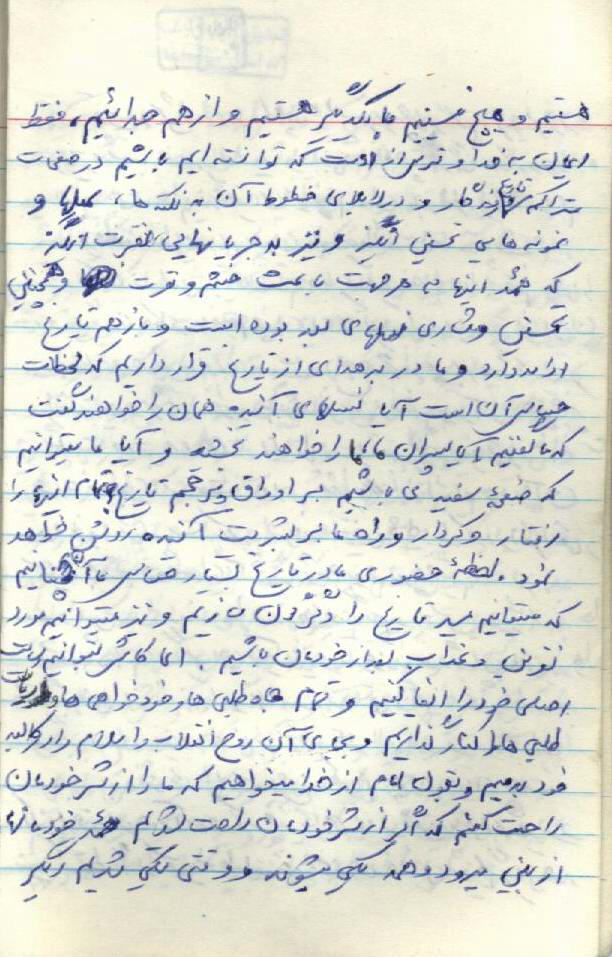 هستیم و هیچ نیستیم با یکدیگر هستیم و از هم جدائیم، فقط
ایمان به خدا و ترس از اوست که توانسته ایم باشیم در صفحات
متراکم تاریخ و در لابلای خطوط آن به نکته ها، عملها و
نمونه هایی تحسین آمیز و نیز به جریانهایی نفرت انگیز
که همهٔ اینها به هر جهت باعث خشم و قوت و همچنین
تحسین و نسلهای بعد بوده است و باز هم تاریخ
ادامه دارد و ما در برهه ای از تاریخ قرار داریم که لحظات
حساس آن است آیا نسلهای آینده همان را خواهند گفت
که ما گفتیم آیا پسران ما، ما را خواهند بخشید و آیا ما میتوانیم
که صفحهٔ سفیدی باشیم بر اوراق پر حجم تاریخ تمام اینها را
رفتار و کردار و راه ما بر بشریت آینده روشن خواهد
نمود. لحظهٔ حضوری ما در تاریخ بسیار حساس ما آنچنانیم
که میتوانیم مسیر تاریخ را دگرگون سازیم و نیز میتوانیم مورد
نفرین و عذاب بعد از خودمان باشیم. اما کاش بتوانیم رسالت
اصلی خود را ایفا کنیم و تمام جاه طلبی ها و خودخواهی ها و
طلبی ها را کنار گذاریم و بجای آن روح انقلاب و اسلام را در کالبد
خود بدمیم و بقول امام از خدا میخواهیم که ما را از شر خودمان
راحت کنم که اگر از شر خودمان راحت شدیم همه خودمانها
از بین میرود و همه یکی میشوند و وقتی یکی شدیم دیگر